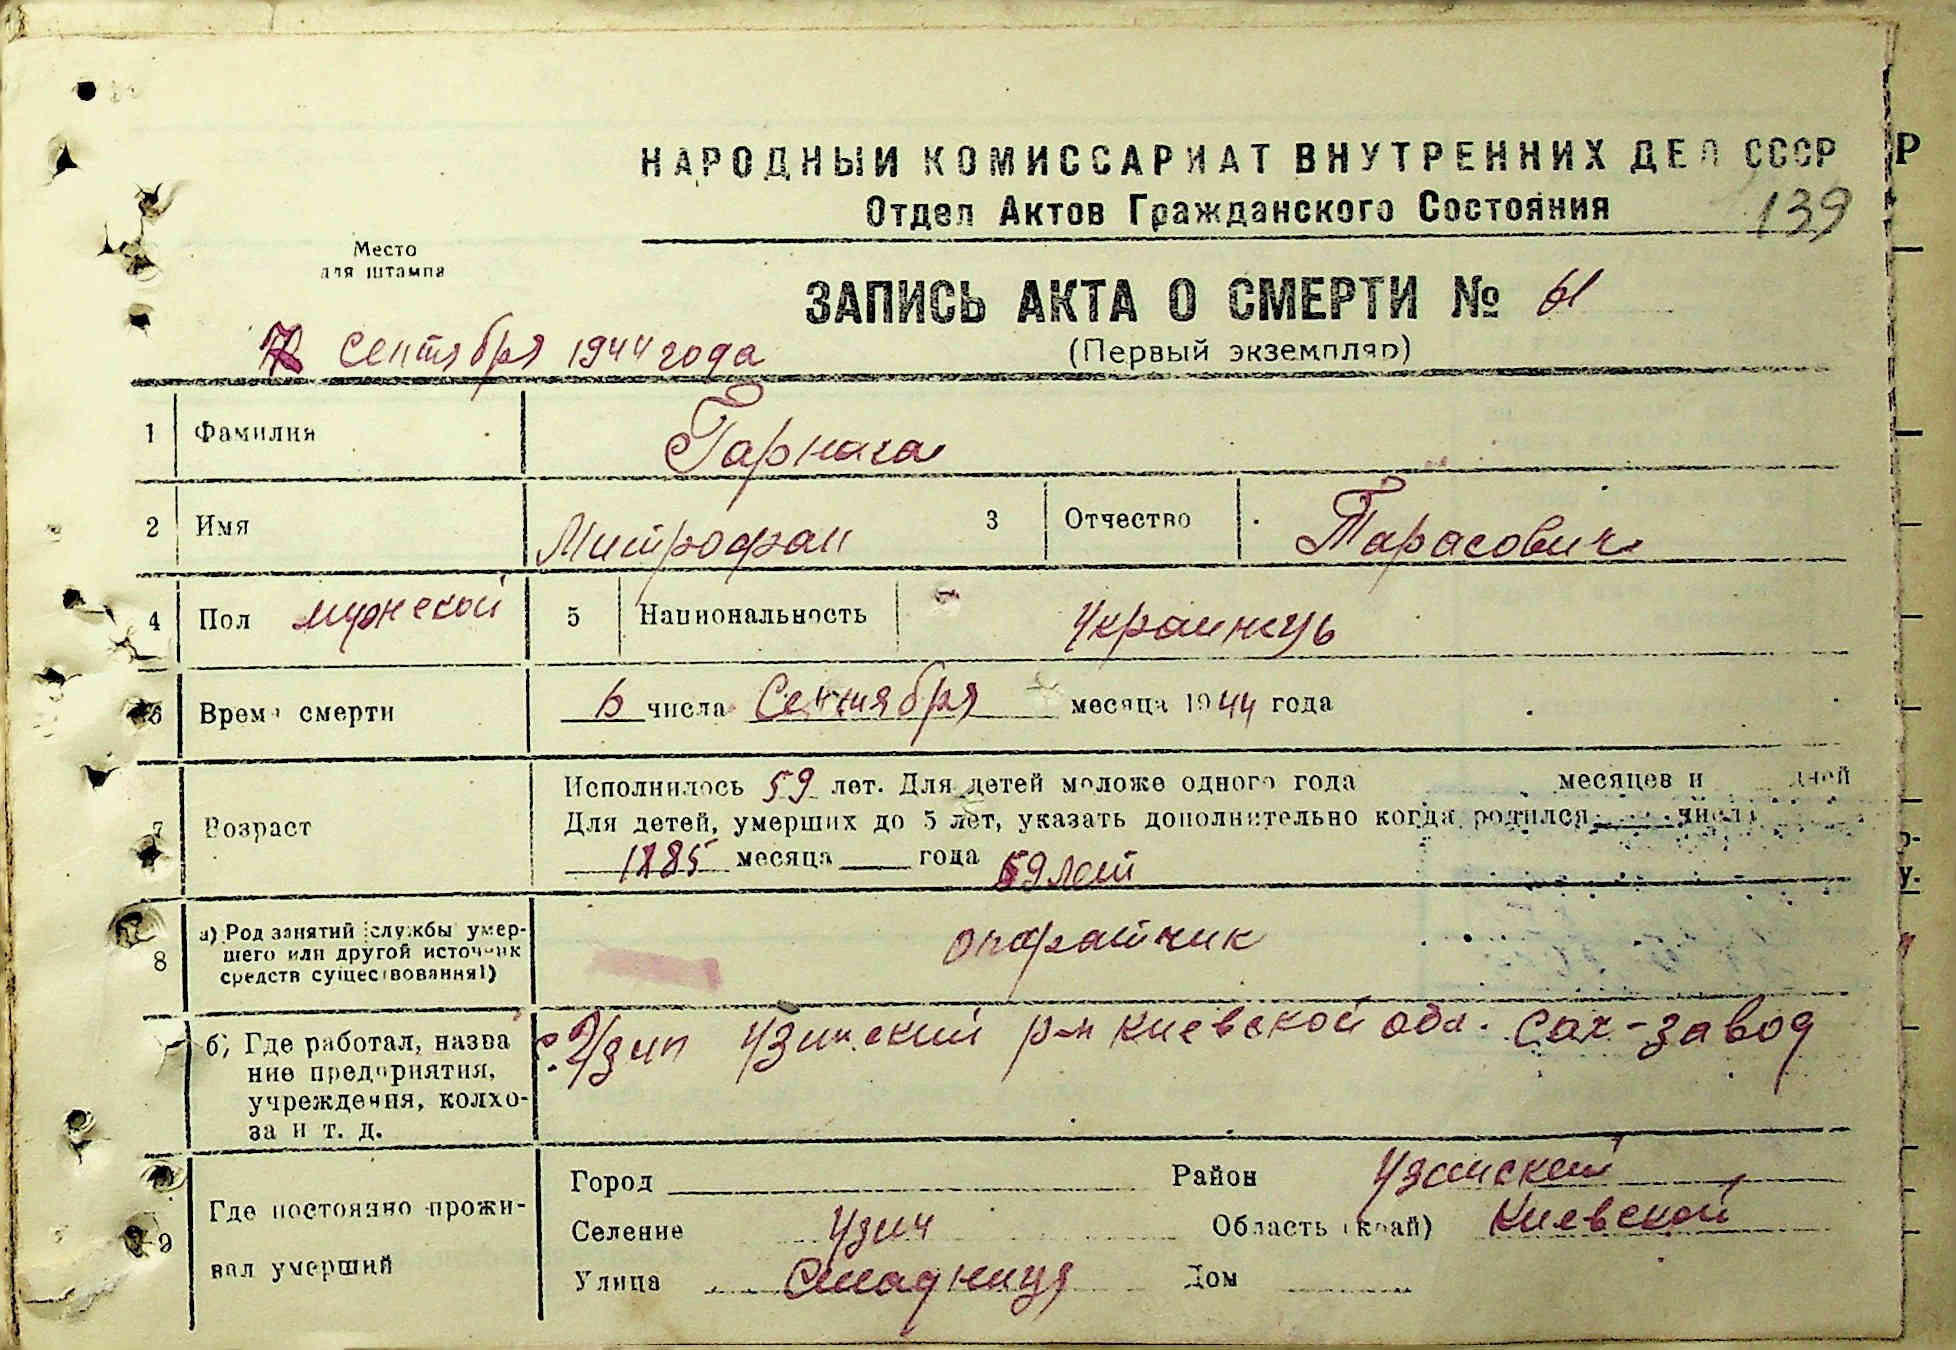 НАРОДНЫЙ КОМИССАРИАТ ВНУТРЕННИХ ДЕЛ СССР
Отдел Актов Гражданского Состояния
139
Место
для штампа
ЗАПИСЬ АКТА О СМЕРТИ № 61
7 Сентября 1944 года
(Первый экземпляр)
1 Фамилия Гарнага
2 Имя Митрофан 3 Отчество Тарасович
4 Пол мужской 5 Национальность Украинець
6 Время смерти 6 числа Сентября месяца 1944 года
7 Возраст Исполнилось 59 лет. Для детей моложе одного года месяцев и дней
Для детей, умерших до 5 лет, указать дополнительно когда родился числа
1885 месяца года 59 лет
8 а) Род занятий (службы умер-
шего или другой источник
средств существования1)
опаратчик
б) Где работал, назва
ние предприятия,
учреждения, колхо-
за и т. д.
с. Узин Узинский р-н Киевской обл. Сах-завод
9 Где постоянно прожи-
вал умерший
Город Район Узинский
Селение Узин Область (край) Киевской
Улица Дом